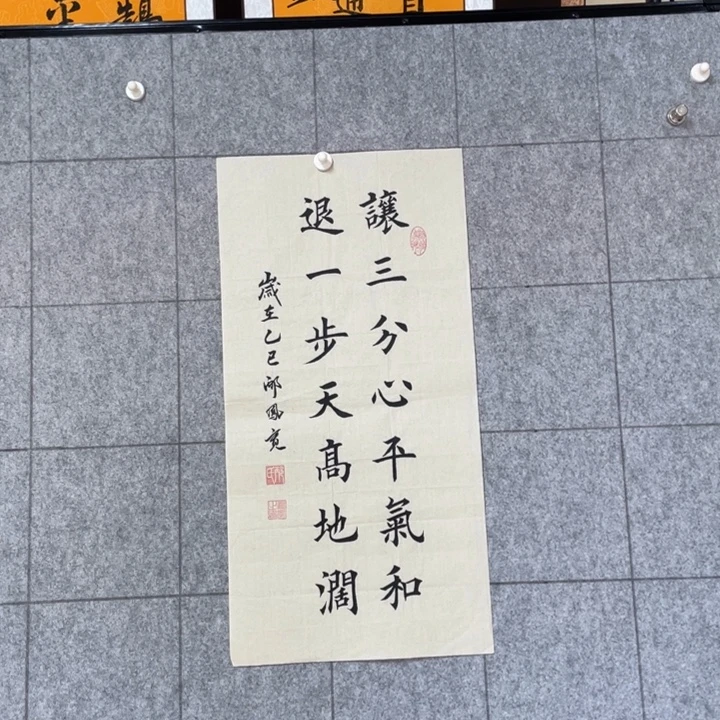 讓三分心平氣和
退一步天高地濶
歲在乙巳